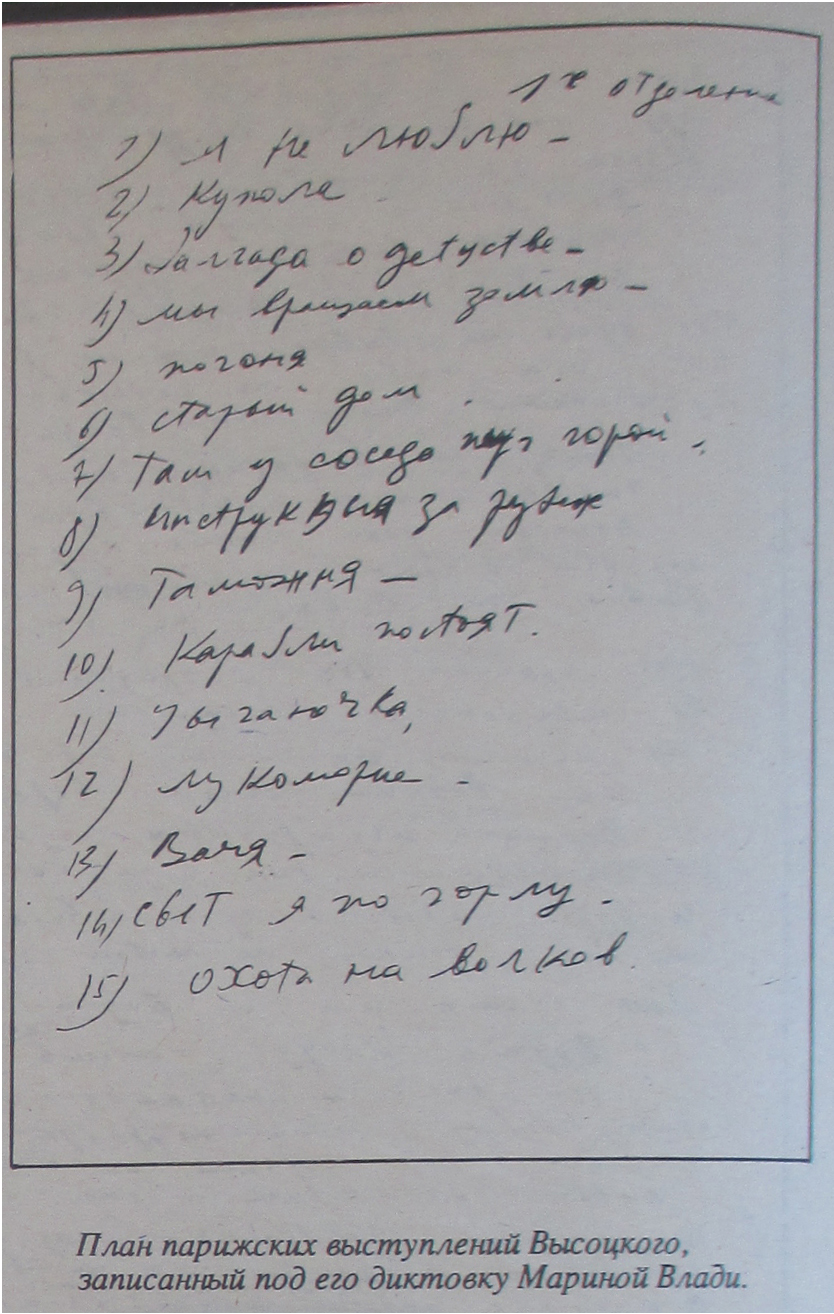 1е отделение
1) я не люблю –
2) Купола
3) Баллада о детустве –
4) мы вращаем землю –
5) погоня
6) старый дом .
7) Там у соседа горой .
8) Инструкция за рубеж
9) Таможня –
10) Карабли постоят.
11) Цыганочка,
12) Лукоморие –
13) Ваня –
14) сыт я по горлу –
15) охота на волков.
План парижских выступлений Высоцкого,
записанный под его диктовку Мариной Влади.